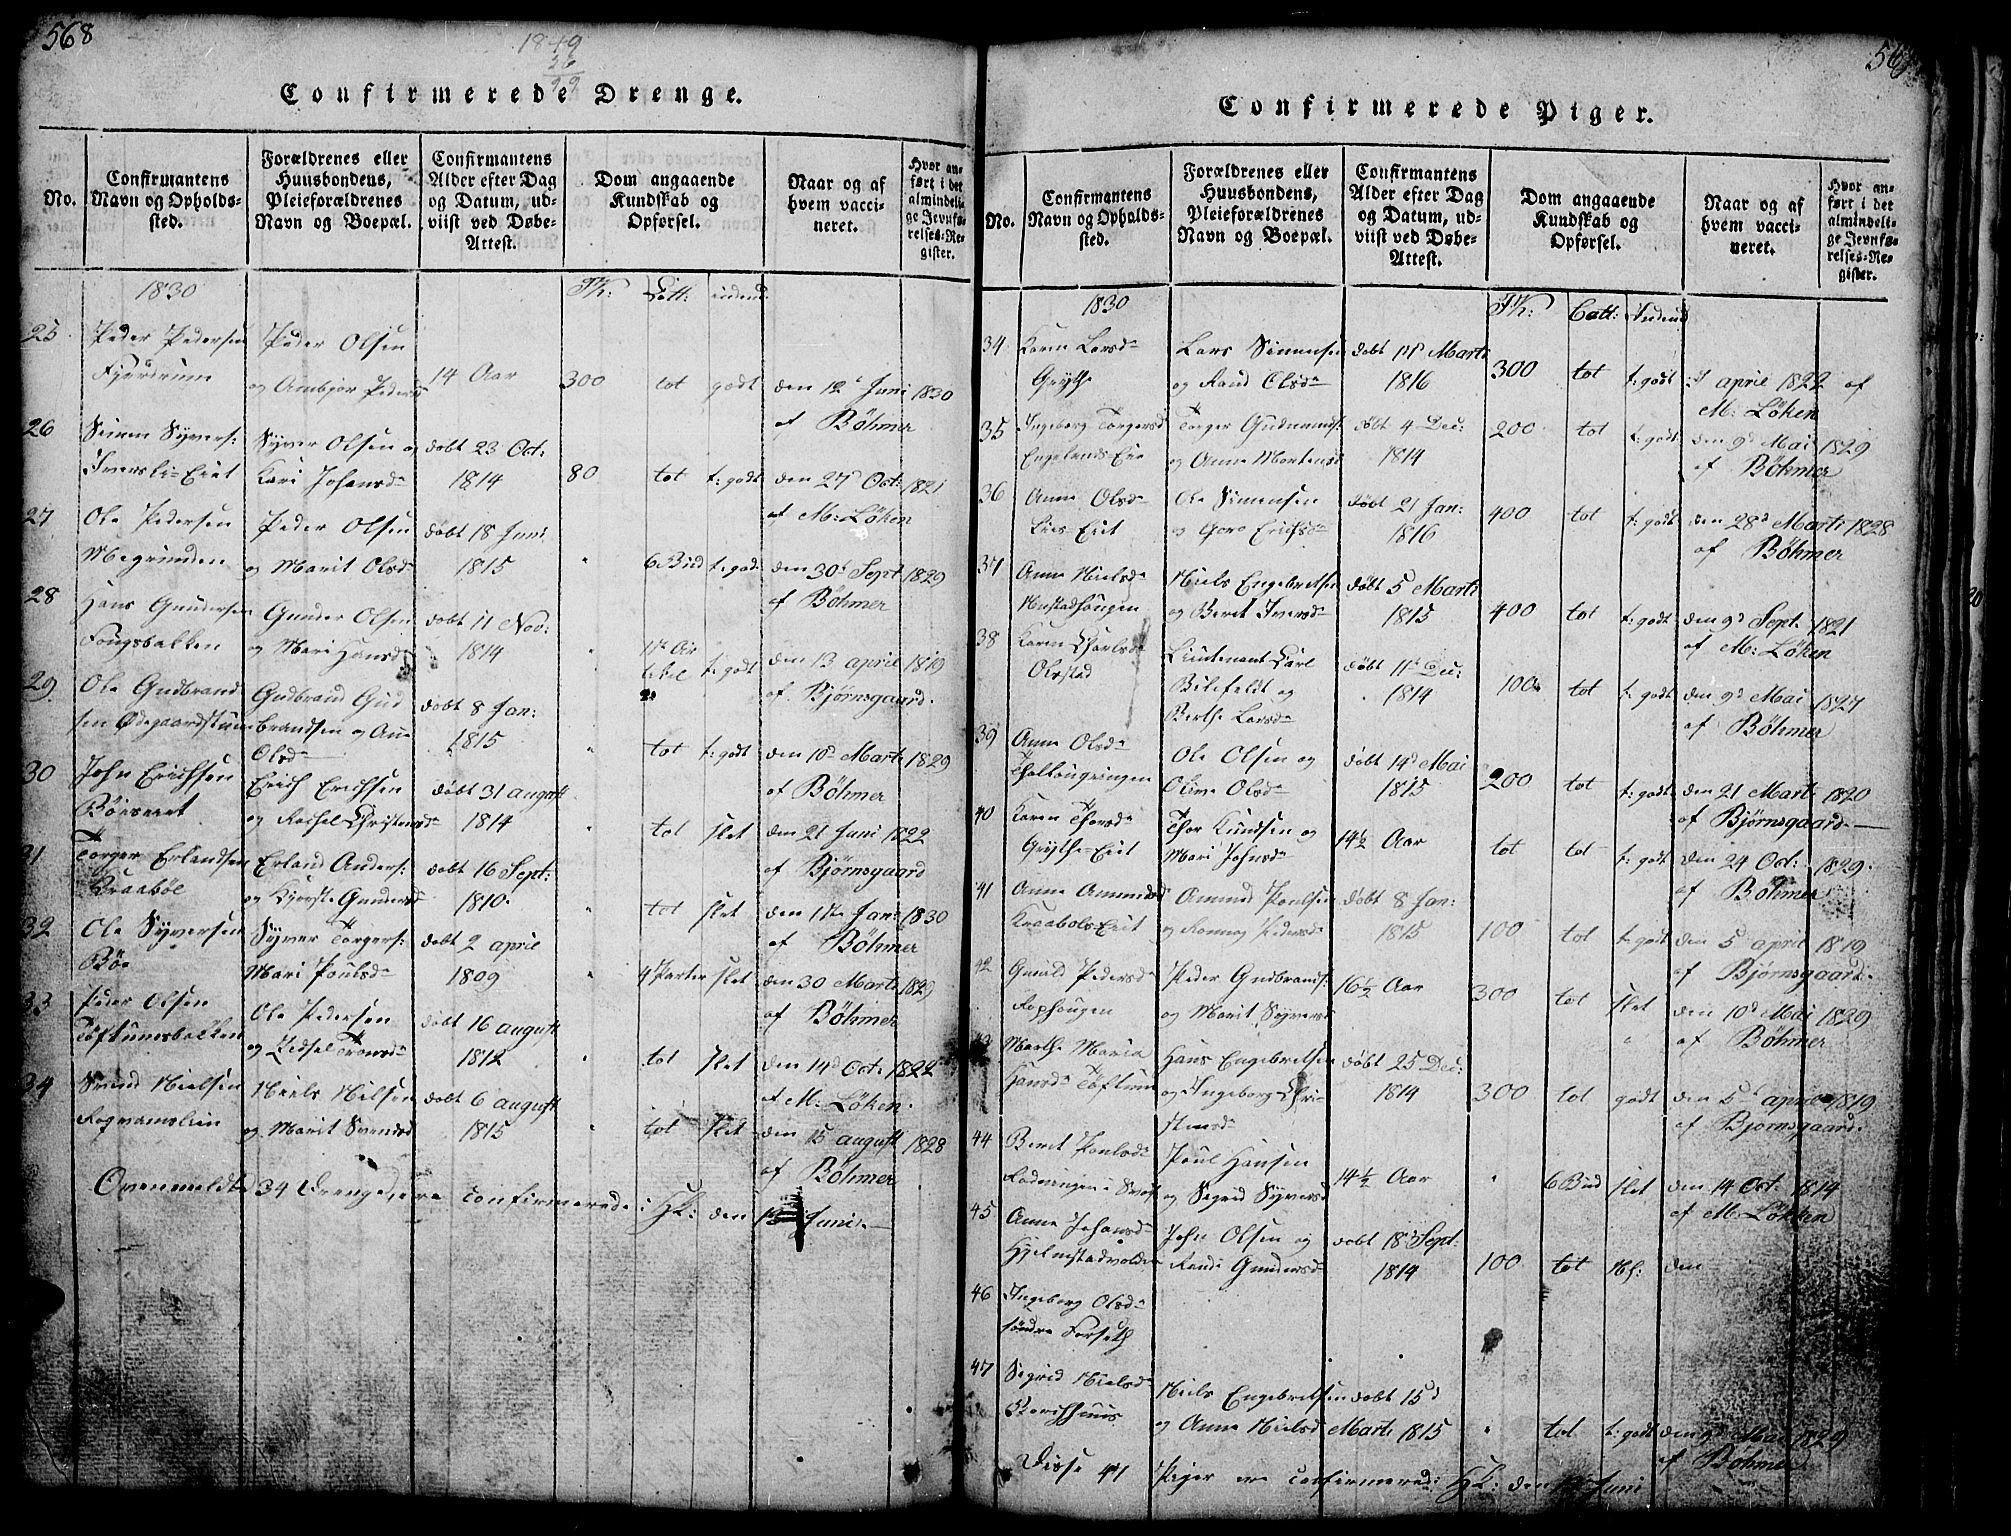 568
1849
26
99
Confirmerede Drenge.
No.
Confirmantens Navn og Opholdssted.
Forældrenes eller Huusbondens, Pleieforældrenes Navn og Boepæl.
Confirmantens Alder efter Dag og Datum, udviist ved Døbe-Attest.
Dom angaaende Kundskab og Opførsel.
Naar og af hvem vaccineret.
Hvor anført i det almindelige Jevnførelses-Register.
1830
25 Peder Pedersen Peder Olsen
og Ambjør Peders 14 Aar 300 tot godt den 12 Juni 1820
af Böhmer
26 Simen Syvers: Syver Olsen og døbt 23 Oct:
Iversli-Eiet Kari Johansd 1814 80 tot t: godt den 27 Oct: 1821
af M: Löken
27 Ole Pedersen Peder Olsen døbt 18 Juni
og Marit Olsd 1815 " 6 Bud t: godt den 30 Sept 1829
af Böhmer
28 Hans Gundersen Gunder Olsen døbt 11 Nov:
Fougsbakken og Mari Hansd 1814 " t: godt den 13 april 1819
af Bjørnsgaard.
29 Ole Gudbrand Gudbrand Gud døbt 8 Jan:
sen Ødegaardstuen brandsen og An 1815 " tot t: godt den 10 Marti 1829
Olsd af Böhmer
30 John Erichsen Erich Erichsen døbt 31 august
og Rachel Christensd 1814 " tot slet den 21 Juni 1822
af Bjørnsgaard
31 Torger Erlandsen Erland Anders: døbt 16 Sept:
Kraabøl og Kjersti Gundersd 1810 " tot slet den 1 Jan: 1830
af Böhmer
32 Ole Syversen Syver Torgers: døbt 2 april
Bøe Mari Poulsd 1809 " 4 Parter slet den 30 Marti 1829
af Böhmer
33 Peder Olsen Ole Pedersen døbt 16 august
Töftumsbakken og Sidsel 1812 " tot slet den 14 Oct: 1822
af M: Löken.
34 Svend Nielsen Niels Nilsen døbt 6 august
og Marit Svendsd 1815 " tot slet den 15 august 1828
af Böhmer
Ovenmeldte 34 Drenge, ere confirmerede i HK: den Juni.
Confirmerede Piger.
No.
Confirmantens Navn og Opholdssted.
Forældrenes eller Huusbondens, Pleieforældrenes Navn og Boepæl.
Confirmantens Alder efter Dag og Datum, udviist ved Døbe-Attest.
Dom angaaende Kundskab og Opførsel.
Naar og af hvem vaccineret.
Hvor anført i det almindelige Jevnførelses-Register.
1830
34 Karen Larsd Lars Simensen døbt Marti
Grythe og Rand Olsd 1816 300 tot t: godt april 1822 af
M: Löken
35 Ingeborg Torgersd Torger Gudmunds døbt 4 Dec:
Engelands Eie og Anne Mortensd 1814 200 tot t: godt den 9 Mai 1829
af Böhmer
36 Anne Olsd Ole Simensen døbt 21 Jan:
Lies Eiet og Goro Erichsd 1816 400 tot t: godt den 28 Marti 1828
af Böhmer
37 Anne Nielsd Niels Engebretsen døbt 5 Marti
Nustadhougen og Beret Iversd 1815 400 tot t: godt den 9 Sept. 1821
af M: Löken
38 Karen Charlsd Lieutenant Carl døbt 11 Dec:
Olestad Bilefeldt og 1814 100 tot t: godt den 9 Mai 1827
Berthe Larsd af Böhmer
39 Anne Olsd Ole Olsen og døbt 14 Mai
Oline Olsd 1815 200 tot t: godt den 21 Marti 1820
af Bjørnsgaard
40 Karen Thorsd Thor Kundsen og 14½ Aar
Grythe-Eiet Mari Johnsd tot tot t: godt den 24 Oct: 1829
af Böhmer
41 Anne Amundsd Amund Poulsen døbt 8 Jan:
Kraabøls-Eiet og Ronnog Pedersd 1815 100 tot t: godt den 5 april 1819
af Bjørnsgaard
42 Gunild Pedersd Peder Gudbrands: 16½ Aar
og Marit Syversd 300 tot slet den 10 Mai 1829
af Böhmer
43 Marthe Maria Hans Engebretsen døbt 25 Dec:
Hansd Töftum og Ingeborg Chri- 1814 300 tot godt den 5 april 1819
stensd af Bjørnsgaard
44 Beret Poulsd Poul Hansen
og Sigrid Syversd 14½ Aar " 6 Bud slet den 14 Oct. 1814
af M: Löken
45 Anne Johansd John Olsen og døbt 18 Sept:
Hjelmstadvolden Randi Gundersd 1814 100 tot den
46 Ingeborg Olsd
söndre Forseth
47 Sigrid Nielsd Niels Engebretsen døbt 15
og Anne Nielsd Marti 1815 " tot t: godt den 9 Mai 1829
af Böhmer
Disse 47 Piger ere confirmered: HK: den Juni